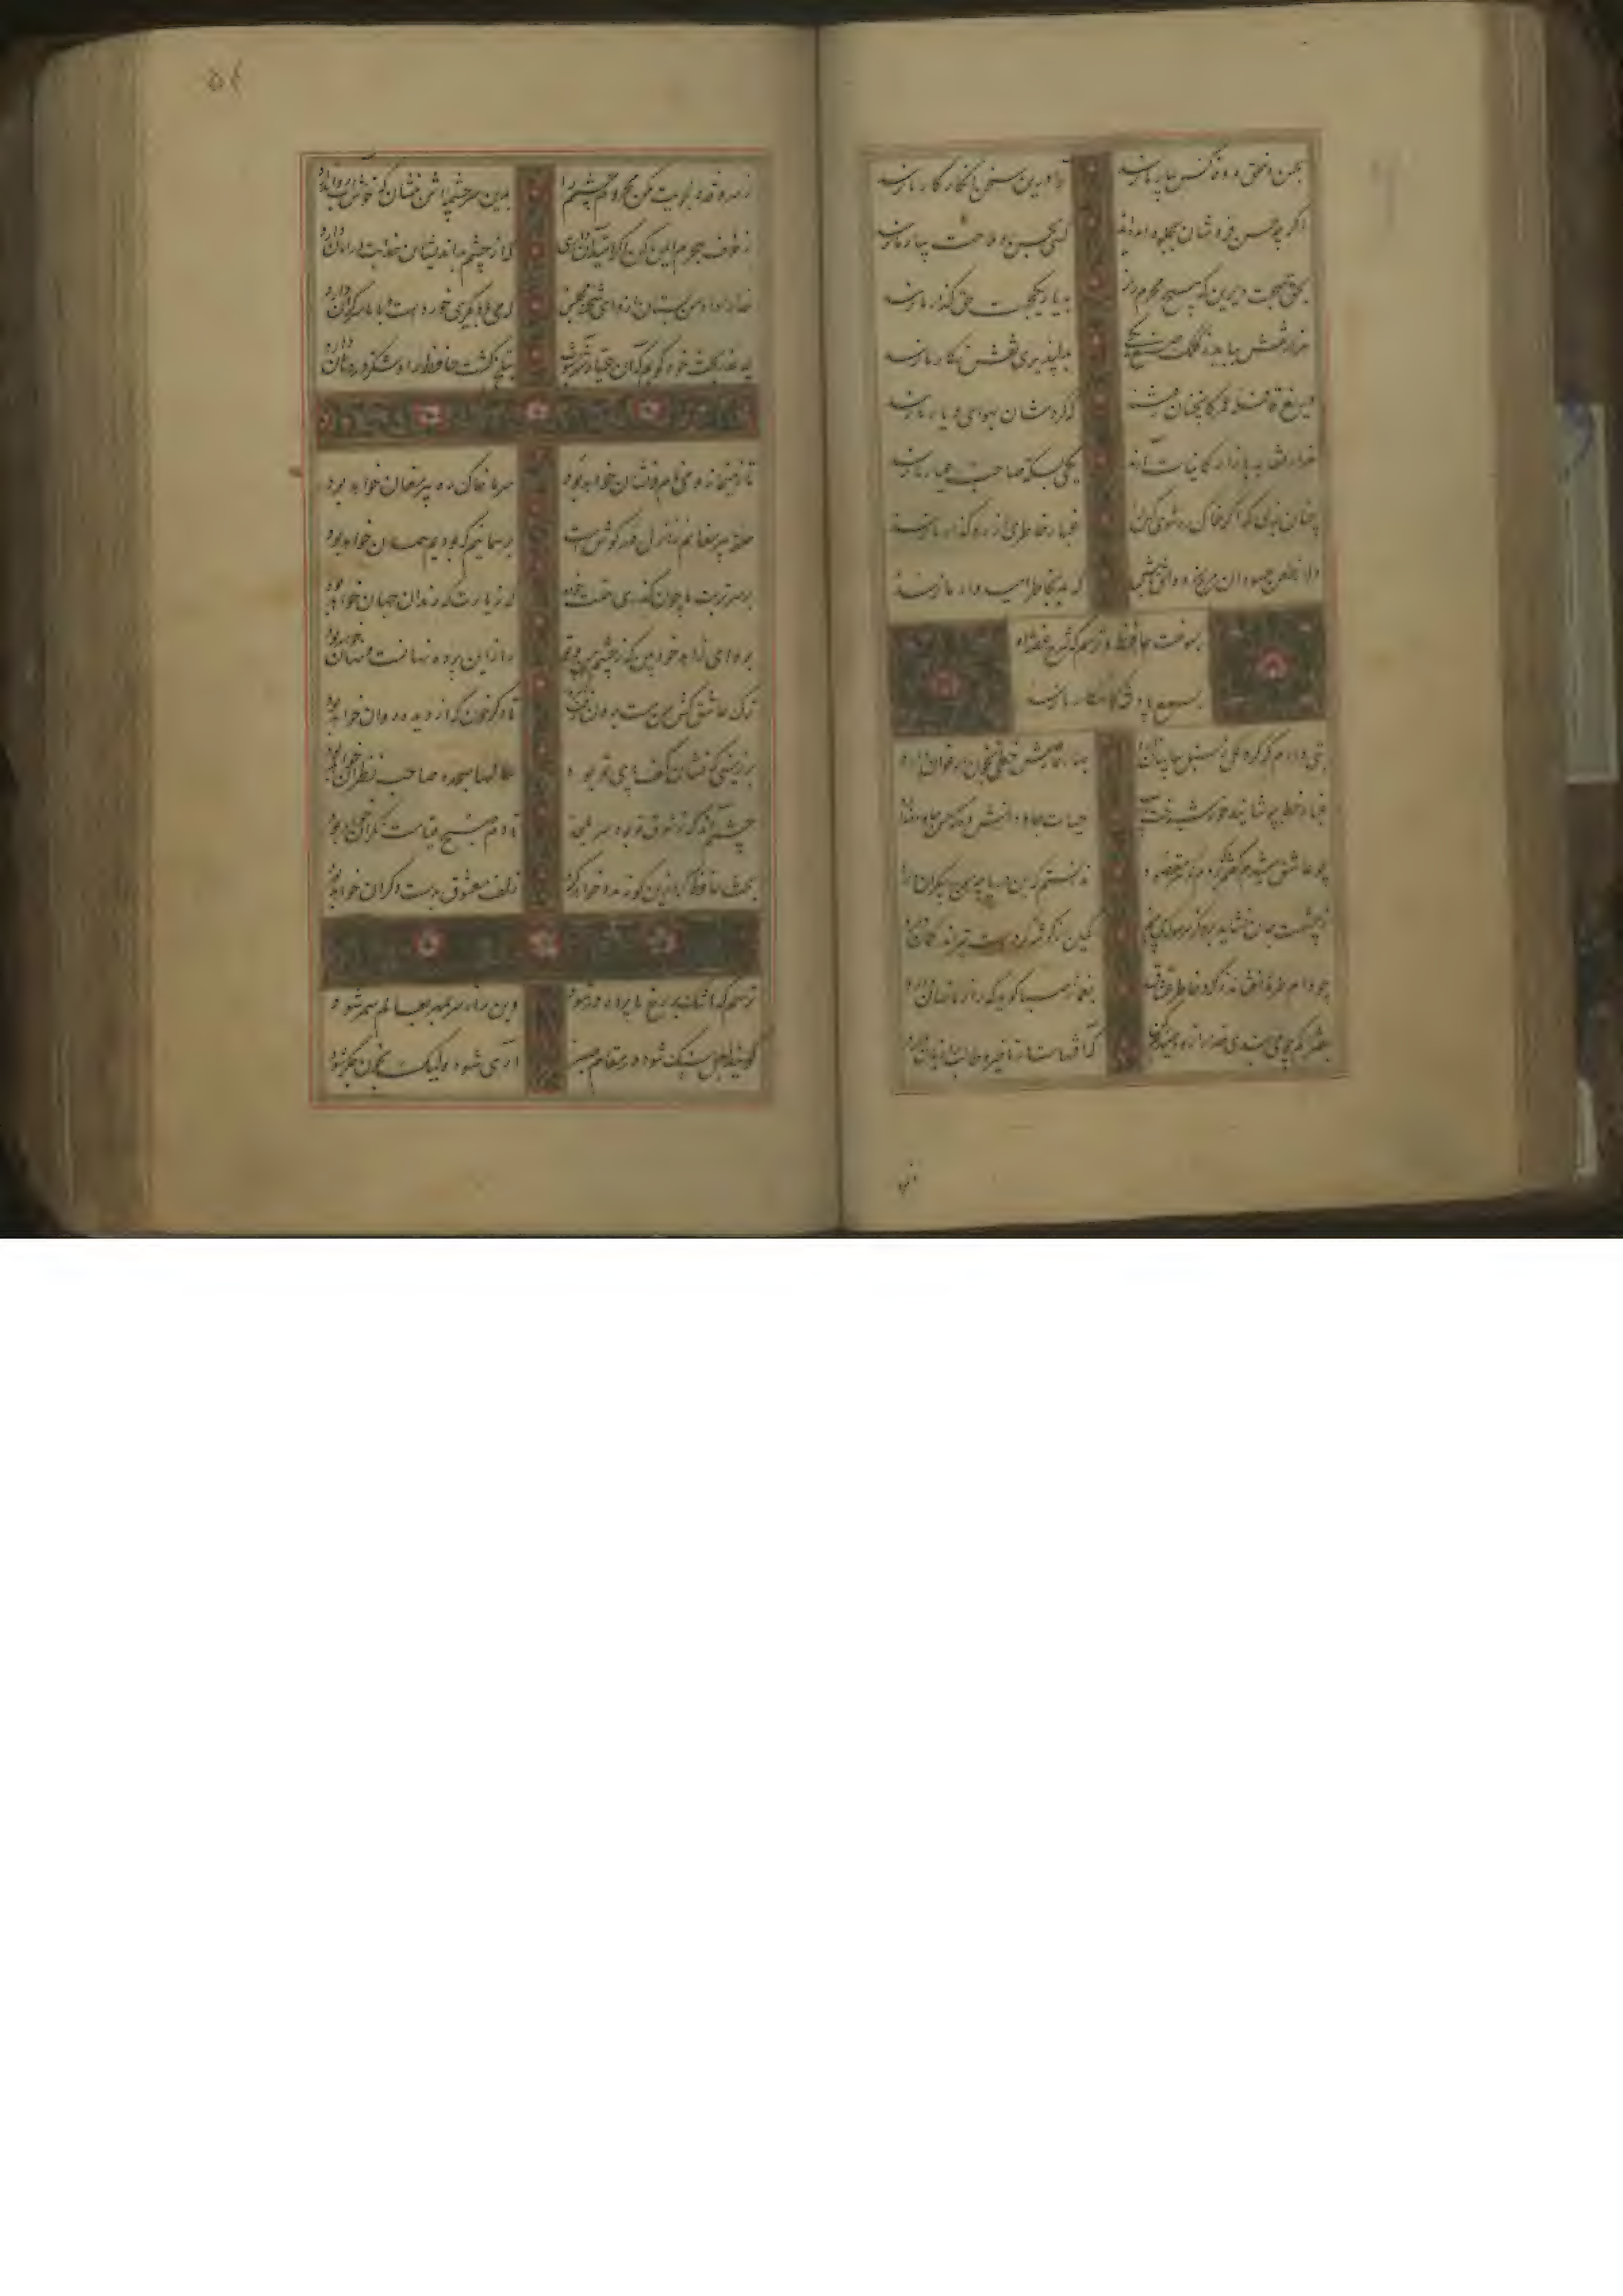 بحسن و خلق و وفا کس بیار ما نرسد ترا درین سخن انکار کار ما نرسد
اگر چه حسن فروشان بجلوه آمده‌اند کسی بحسن و ملاحت بیار ما نرسد
بحق صحبت دیرین که هیچ محرم راز بیار یکجهت حق گذار ما نرسد
هزار نقش برآید ز کلک صنع یکی بدلپذیری نقش نگار ما نرسد
دریغ قافله عمر کانچنان رفتند که کردشان بهوای دیار ما نرسد
هزار نقد ببازار کاینات آرند یکی بسکه صاحب عیار ما نرسد
چنان بزی که اگر خاک ره شوی کس را غبار خاطری از رهگذار ما نرسد
دلا ز طعن حسودان مرنج و واثق باش که بد بخاطر امیدوار ما نرسد
بسوخت حافظ و ترسم که شرح قصه او
بسمع پادشه کامکار ما نرسد
بتی دارم که گرد گل ز سنبل سایبان دارد بهار عارضش خطی بخون ارغوان دارد
غبار خط بپوشانید خورشید رخش یارب حیات جاودانش ده که حسن جاودان دارد
چو عاشق میشدم گفتم که بردم گوهر مقصود ندانستم که این دریا چه موج بیکران دارد
ز چشمت جان نشاید برد کز هر سو که می‌بینم کمین از گوشه کردست و تیر اندر کمان دارد
چو دام طره افشاند ز گرد خاطر عشاق بغماز صبا گوید که راز ما نهان دارد
بفتراک ار همی بندی خدا را زود صیدم کن که آفتهاست در تاخیر و طالب را زیان دارد
ز سرو قد دلجویت مکن محروم چشمم را بدین سرچشمه‌اش بنشان که خوش آبی روان دارد
ز خوف هجرم ایمن کن اگر امید آن داری که از چشم بداندیشان خدایت در امان دارد
خدا را داد من بستان ازو ای شحنه مجلس که می با دیگری خوردست و با ما سر گران دارد
چه عذر بخت خود گویم که آن عیار شهرآشوب بتلخی کشت حافظ را و شکر در دهان دارد
تا ز میخانه و می نام و نشان خواهد بود سر ما خاک ره پیر مغان خواهد بود
حلقه پیر مغانم ز ازل در گوش است بر همانیم که بودیم و همان خواهد بود
بر سر تربت ما چون گذری همت خواه که زیارتگه رندان جهان خواهد بود
برو ای زاهد خودبین که ز چشم من و تو راز این پرده نهانست و نهان خواهد بود
ترک عاشق کش من مست برون رفت تا دگر خون که از دیده روان خواهد بود
بر زمینی که نشان کف پای تو بود سالها سجده صاحب نظران خواهد بود
چشمم آندم که ز شوق تو نهد سر بلحد تا دم صبح قیامت نگران خواهد بود
بخت حافظ گر ازین گونه مدد خواهد کرد زلف معشوق بدست دگران خواهد بود
ترسم که اشک در غم ما پرده در شود وین راز سر بمهر بعالم سمر شود
گویند لعل سنگ شود در مقام صبر آری شود ولیک بخون جگر شود